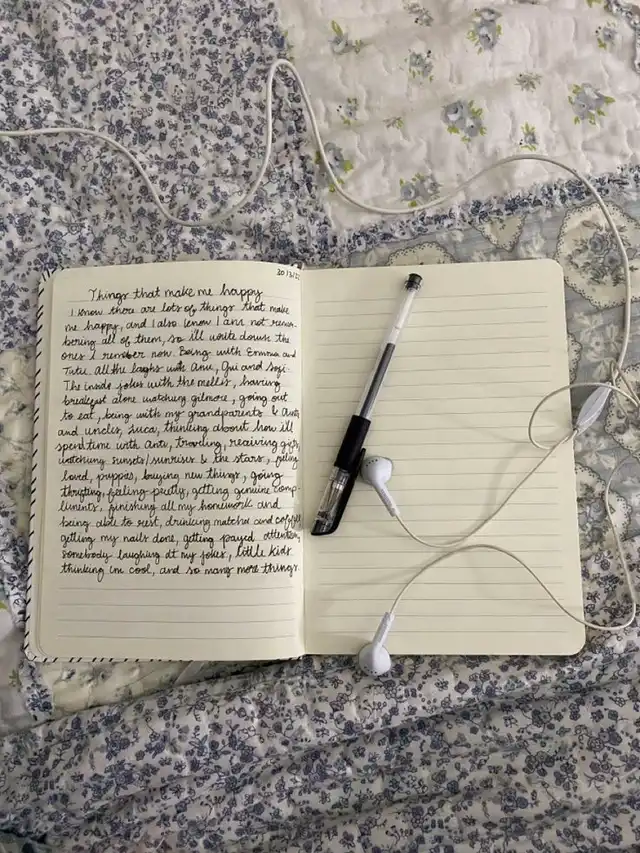 30/3/2
Things that make me happy
I know there are lots of things that make
me happy, and I also know I am not remem-
bering all of them, so ill write down the
ones I remeber now. Being with Emma and
Tutu. all the laughs with Anu, Gui and
The inside jokes with the melles, having
breakfast alone watching gilmore, going out
to eat, being with my grandparents & Aunts
and uncles, Luca, thinking about how ill
spend time with Antu, traveling, receiving gifts,
watching sunsets/sunrises & the stars, feeling
loved, puppies, buying new things, going
thrifting, feeling pretty, getting genuine comp-
liments, finishing all my homework and
being able to rest, drinking matcha and coffee
getting my nails done, getting payed attention,
somebody laughing at my jokes, little kids
thinking im cool, and so many more things.